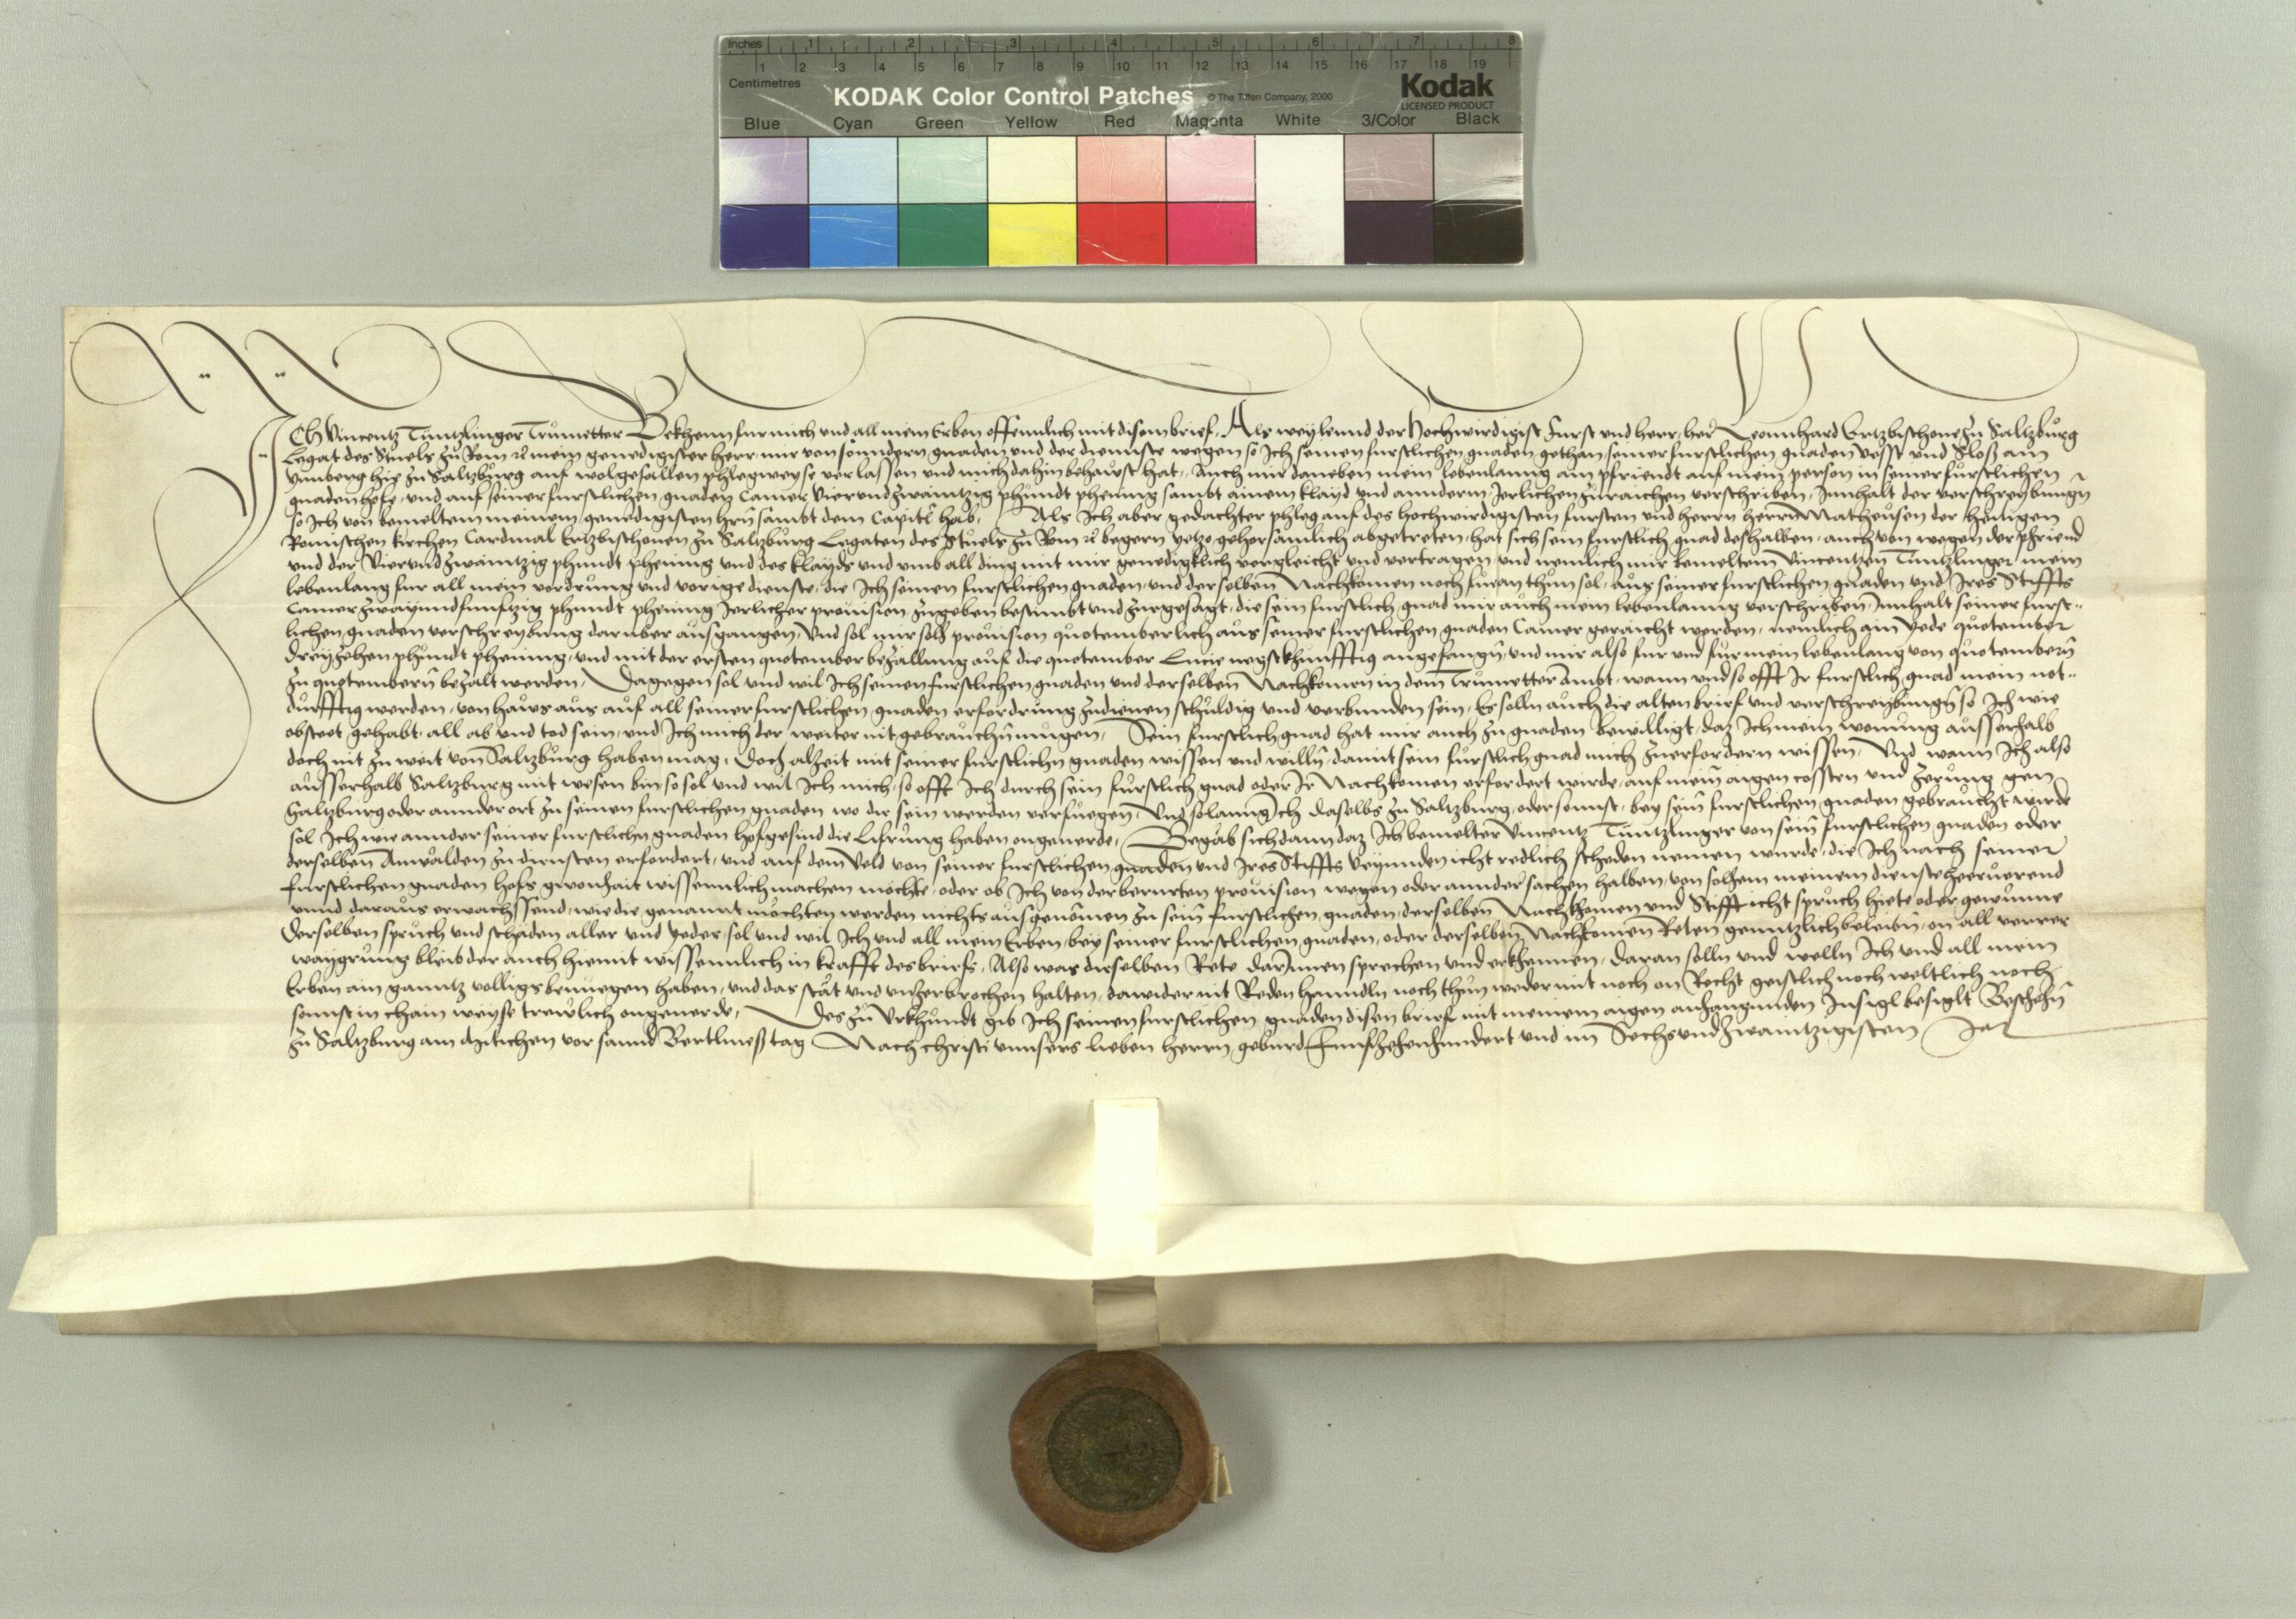 Inches 1 2 3 4 5 6 7 8
Centimetres 1 2 3 4 5 6 7 8 9 10 11 12 13 14 15 16 17 18 19
KODAK Color Control Patches © The Tiffen Company, 2000 Kodak
LICENSED PRODUCT
Blue Cyan Green Yellow Red Magenta White 3/Color Black
ICh Vincentz Tüntzlinger Trůmetter Bekhenn fur mich und all mein Erben offennlich mit disem brief, Als weylennd der Hochwirdigist Furst und herr, herr Leonnhard Ertzbischove zu Saltzbůrg
Legat des Stuels zů Rom &c mein genedigister herr, mir von sonndern gnaden und der diennste wegen so Ich seinen furstlichen gnaden gethan seiner furstlichen gnaden Vesst und Sloß am
Ymberg hie zu Saltzbůrg auf wolgefallen phlegweyse verlassen und mich dahin behaust hat, Auch mir daneben mein lebenlanng ain pfriendt auf mein person in seiner fůrstlichen
gnaden hofe, und auf seiner furstlichen gnaden Camer Vierundzwaintzig phundt phening sambt ainem klayd und anndern Jerlichen zůraichen verschriben, Innhalt der verschreybunngn
so Ich von bemeltem meinem genedigisten hrn sambt dem Capitl hab, Als Ich aber gedachter phleg auf des hochwirdigisten fursten und herrn herrn Matheusen der heiligen
Romischen kirchen Cardinal Ertzbischoven zu Saltzburg Legaten des Stuels zu Rom &c begern yetzo gehorsamlich abgetreten, hat sich sein furstlich gnad deshalben, auch von wegen der pfriend
und der Vierundzwaintzig phundt phening und des klayds und umb all ding mit mir genedigklich vergleicht und vertragen und nemlich mir bemeltem Vincentzen Tüntzlinger mein
lebenlang fur all mein vordrung und vorige dienste, die Ich seinen furstlichen gnaden und derselben Nachkomen noch furan thun sol, aus seiner furstlichen gnaden und Ires Stiffts
Camer zwayundfunfftzig phundt phening Jerlicher provision zugeben bestimbt und zuegesagt, die sein furstlich gnad mir auch mein lebenlanng verschriben, Innhalt seiner furst-
lichen gnaden verschreybung daruber ausgangen, Und sol mir solh provision quotemberlich aus seiner furstlichen gnaden Camer geraicht werden, nemlich ain yede quotember
dreyzehen phundt phening, und mit der ersten quotember bezallung auf die quotember Lucie negstkhunfftig angefangn, und mir also fur und fur mein lebenlang von quotembern
zu quotembern bezalt werden, Dagegen sol und wil Ich seinen furstlichen gnaden und derselben Nachkomen in dem Trůmetter Ambt, wann und so offt Ir furstlich gnad mein not-
durfftig werden, von haws aus auf all seiner furstlichen gnaden erfordrung zudienen schuldig und verbunden sein, Es solln auch die alten brief und verschreybungn so Ich wie
obsteet gehabt, all ab und tod sein, und Ich mich der weiter nit gebrauchn mugen, Sein furstlich gnad hat mir auch zu gnaden bewilligt, daz Ich mein wonung ausserhalb
doch nit zu weit von Saltzburg haben mag, Doch alzeit mit seiner furstlichn gnaden wissen und willn, damit sein furstlich gnad mich zuerfordern wissen, Und wann Ich also
ausserhalb Saltzburg mit wesen bin so sol und wil Ich mich, so offt Ich durch sein furstlich gnad oder Ir Nachkomen erfordert wirde, auf mein aigen cossten und zerung gen
Saltzburg oder annder ort zu seinen furstlichen gnaden wo die sein werden verfuegen, Und solanng Ich daselbs zu Saltzburg, oder sonnst, bey sein furstlichen gnaden gebraucht wirde
sol Ich wie annder seiner furstlichn gnaden hofgesind die Lifrung haben ongeverde, Begab sich dann daz Ich bemelter Vincentz Tüntzlinger von sein furstlichen gnaden oder
derselben Anwalden zu diensten erfordert, und auf dem Veld von seiner furstlichen gnaden und Ires Stiffts Veynnden icht redlich scheden nemen wurde, die Ich nach seiner
furstlichen gnaden hofs gewonhait wissennlich machen mochte, oder ob Ich von derberurten provision wegen oder annder sachen halben, von solhem meinem dienste herruerend
unnd daraus erwachssend, wie die genannt mochten werden nichts ausgenomen zu sein furstlichen gnaden, derselben Nachkhomen und Stifft icht spruch hiete oder gewunne
derselben spruch und scheden aller und yeder, sol und wil Ich und all mein Erben, bey seiner furstlichen gnaden, oder derselben Nachkomen Reten genntzlich beleibn, on all verrer
waygrung bleib der auch hiemit wissennlich in krafft des briefs, Also was dieselben Rete darinnen sprechen und erkhennen, daran solln und welln Ich und all mein
Erben ain ganntz volligs benuegen haben, und das stat und unzerbrochen halten, dawider nit Reden hanndln noch thun weder mit noch on Recht geistlich noch weltlich noch
sonnst in chain weyse trewlich ongeverde, Des zu Urkhundt gib Ich seinen furstlichen gnaden disen brief mit meinem aigen anhangunden Insigl besiglt Beschehn
zu Saltzburg am Mitichen vor sannd Bertlmeß tag Nach Christi unnsers lieben herrn geburd Funffzehenhundert und im Sechsundzwaintzigisten Jar